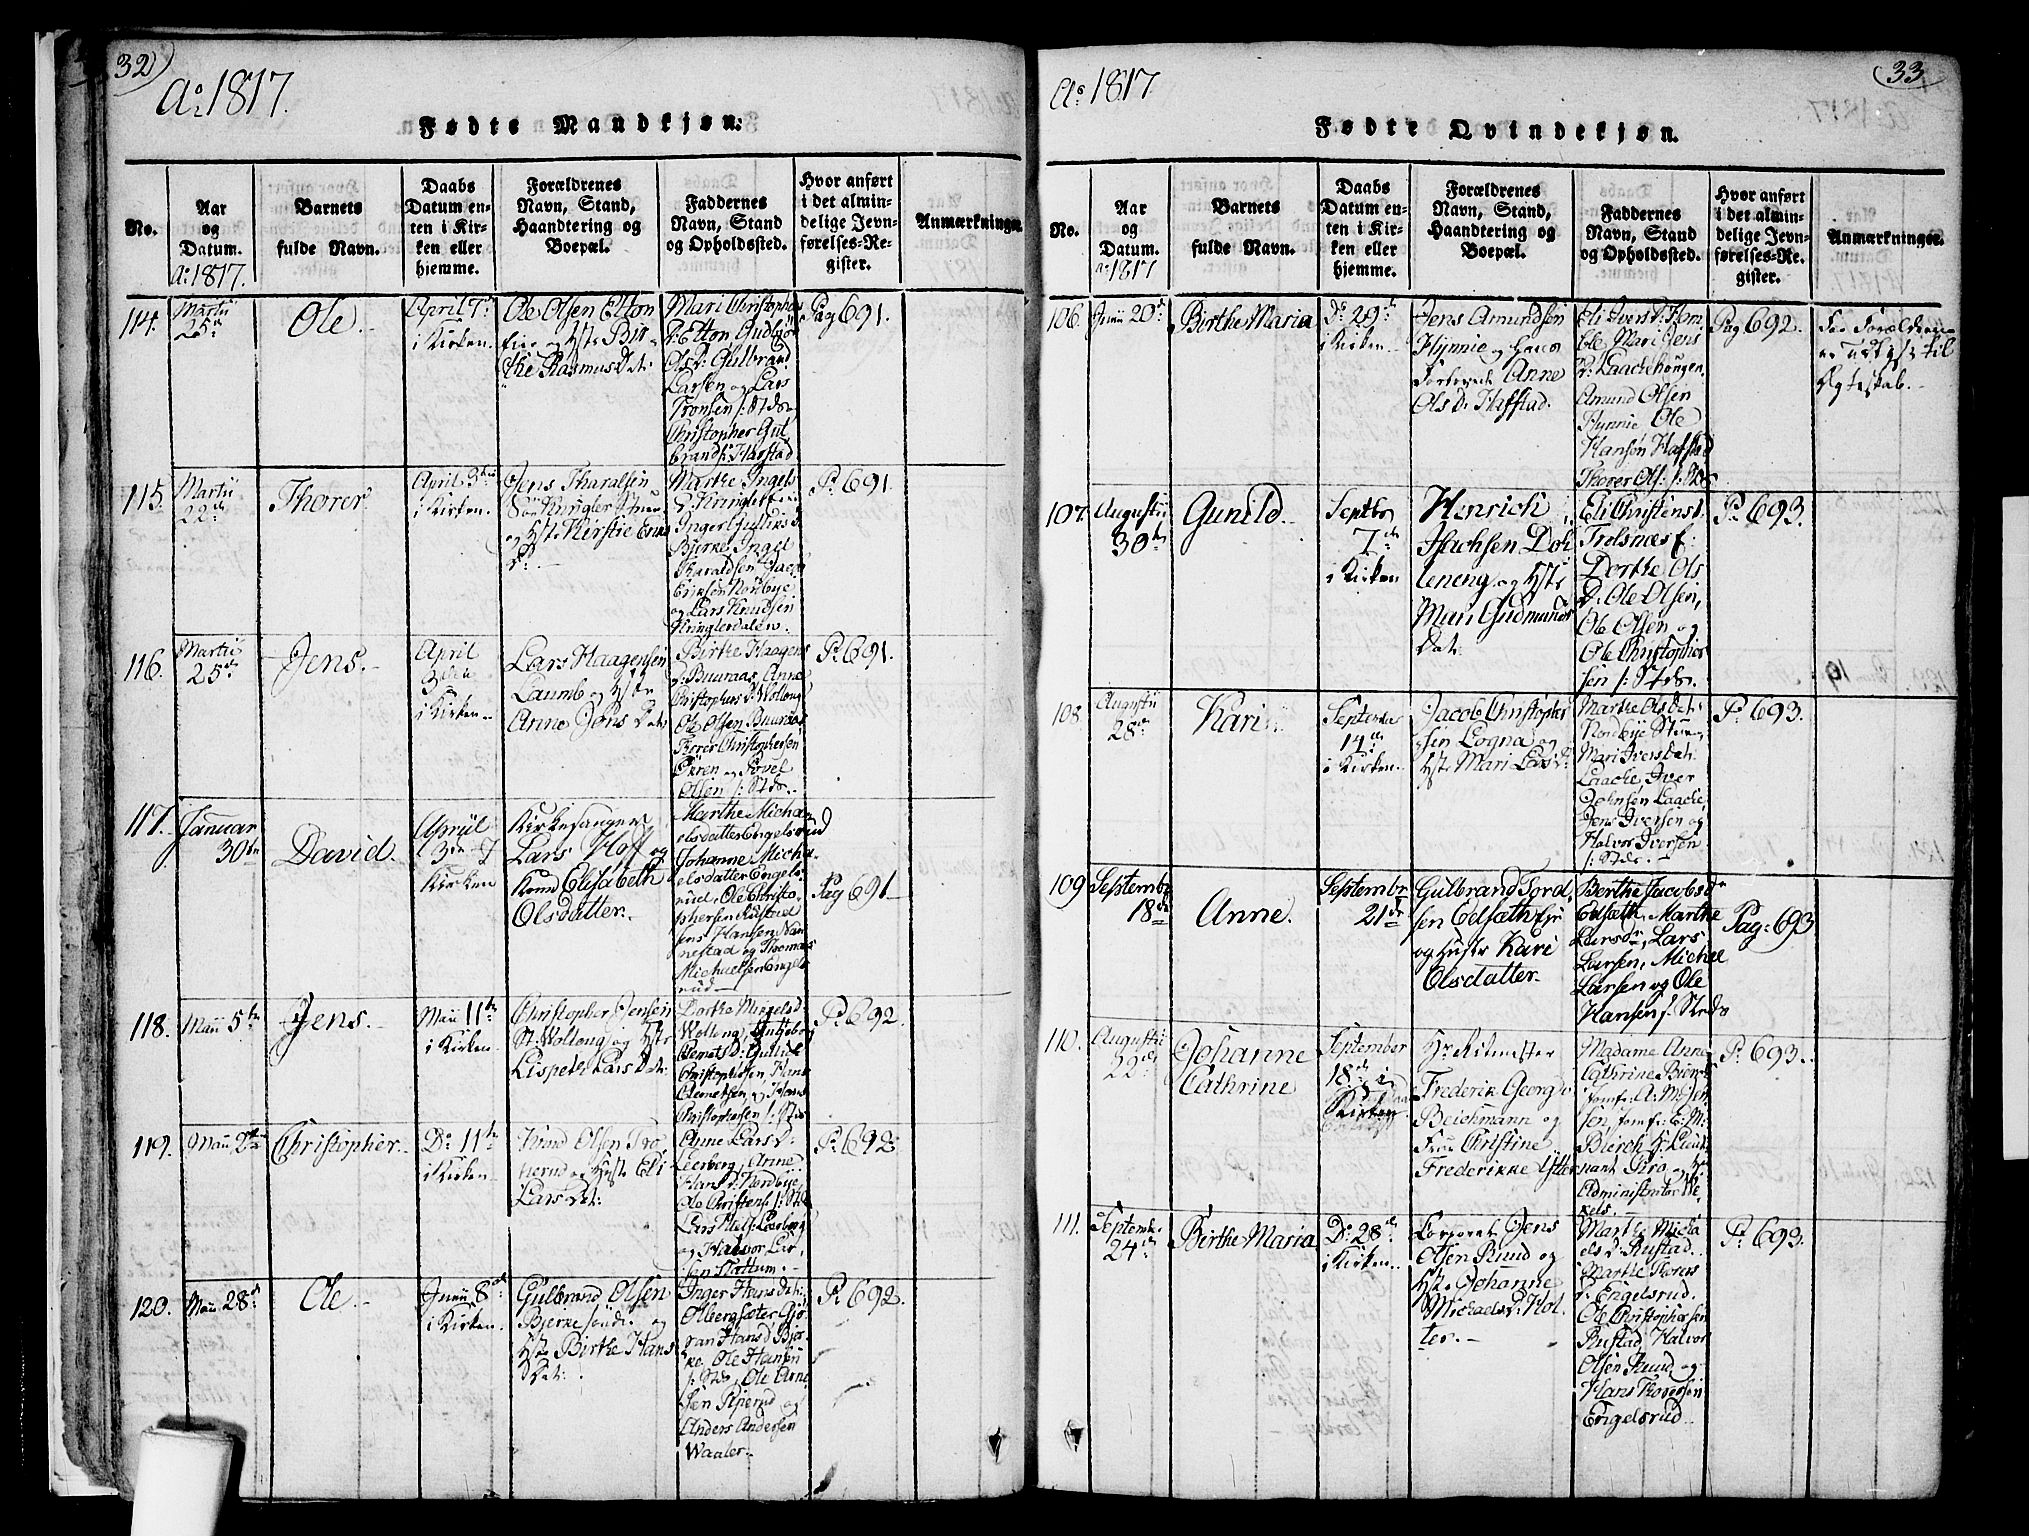 32
Ao 1817.
Fødte Mandkjøn.
No.
Aar
og
Datum.
Ao 1817.
Barnets
fulde Navn.
Daabs
Datum en-
ten i Kir-
ken eller
hjemme.
Forældrenes
Navn, Stand,
Haandtering og
Boepæl.
Faddernes
Navn, Stand
og Opholdssted.
Hvor anført
i det almin-
delige Jevn-
førelses-Re-
gister.
Anmærkninger.
114.
Martii
25de
Ole.
April 7de
i Kirken.
Ole Olsen Etton
og Hstr Bir-
the Rasmus Dat:
Mari Christophers
D: Etton
Ols D: Gulbrand
Larsen og Lars
Tronsen /: Stds
Christopher Gul
brands: Harstad
Pag 691.
115.
Martii
22de
Thorer.
April
i Kirken.
Jens Tharalsen
og Hst: Kirstie Erics
D:
Marthe Ingels
D: Kringler
Inger
Bjerke, Ingel
Tharaldsen
Eriksen Nordbye
og Lars Knudsen
Kringlerdalen.
P: 691.
116.
Martii
25de
Jens.
April
i Kirken.
Lars Haagensen
Laumb og Hstr
Anne Jens Dat:
Birthe Haagens
D: Buuraas Anne
Christophers D: Wollong
Ole Olsen Buuraas
Thorer Christophersen
 Olsen /: Stds.
P: 691.
117.
Januar
30te
David.
April
i
Kirken
Kirkesanger
Lars Hoff og
Kone Elisabeth
Olsdatter.
Marthe Micha
elsdatter Engelsrud
Johanne Micha
elsdatter Engels
rud, Ole Christo
phersen Rustad
Jens Hansen Nan
nestad og Thomas
Michaelsen Engels
rud
Pag 691
118.
Maii 5te
Jens.
Maii 11te
i Kirken.
Christopher Jensen
St: Wollong og Hstr
Lispeth Lars Dat:
Dorthe Migels D
Wollong,
Clemets D: Gullich
Christophersen, Hans
Clemetsen, og Hans
Christophersen /: Stds
P: 692.
119.
Maii
Christopher.
Do 11te
i Kirken.
Knud Olsen Tro
og Hstr Eli
Lars Dat:
Anne Lars D:
Leerberg, Anne
Hans D: Nordbye,
Ole Christens: /: Stds
Lars Leerberg
og Halvor Lar
sen Slottum.
P: 692.
120.
Maii 28de
Ole.
Junii 8de
i Kirken.
Gulbrand Olsen
Bjerke søndre og
Hstr Birthe Hans
Dat:
Inger Hans Dat:
Olbergsæter
Hans D: Bjer
ke, Ole Hansen
/: Stds, Ole Arne
sen og
Anders Andersen
Waaler.
P: 692.
33
Ao 1817
Fødte Qvindekjøn.
No.
Aar
og
Datum.
Ao 1817
Barnets
fulde Navn.
Daabs
Datum en-
ten i Kir-
ken eller
hjemme.
Forældrenes
Navn, Stand,
Haandtering og
Boepæl.
Faddernes
Navn, Stand
og Opholdssted.
Hvor anført
i det almin-
delige Jevn-
førelses-Re-
gister.
Anmærkninger.
106.
Junii 20de
Birthe Maria
Do 29de
i Kirken.
Jens Amundsen
Hynnie og hans
Anne
Ols D: Haffstad.
Eli Ivers D:
Mari Jens
D: Laachehougen.
Amund Olsen
Hynnie Ole
Hansen Haffstad
Thorer Ols: /: Stds
Pag 692.
Forældrene
er udlyste til
Ægteskab.
107.
Augustii
30te
Gunild.
Septbr
7de
i Kirken
Henrich
Isachsen Doh
leneng og Hstr
Mari Gudmunds
Dat:
Eli Christens D:
Trolsnæs
Dorthe Ols
D: Ole Olsen,
Ole Olsen og
Ole Christopher
sen /: Stds.
P: 693.
108.
Augustii
28de
Kari
Septembr
14de
i Kirken.
Jacob Christopher
sen Logna og
Hstr Mari Lars D:
Marthe Ols Dat:
Nordbye
Mari Ivers Dat:
Laache, Iver
Johnsen Laache
Jens Iversen og
Halvor Iversen
/: Stds.
P: 693.
109
Septembr
18de
Anne.
Septembr
21de
Gulbrand Tord
sen Edsæth
og Hustr Kari
Olsdatter.
Berthe Jacobsdr
Edsæth, Marthe
Larsdr, Lars
Larsen, Michel
Larsen og Ole
Hansen /: Stds
Pag: 693
110.
Augustii
22de
Johanne
Cathrine
September
18de i
Kirken
Hr Ritmester
Frederik Georg v
Beichmann og
Frue Christine
Frederikke
Madame Anne
Cathrine
Jomfr: A: M: Jen
sen, Jomfr: E: M:
Bierch, Hr Lieute
nant Kro og Hr
Administrator We
sels.
P: 693.
111.
Septembr.
24de
Birthe Maria
Do 28de
i Kirken.
Corporal Jens
Olsen Ruud og
Hstr Johanne
Michaels D: Hol
ter.
Marthe Micha
els D: Rustad.
Marthe Thorers
D: Engelsrud.
Ole Christophersen
Rustad, Halvor
Olsen Ruud og
Hans Thoresen
Engelsrud.
P: 693.